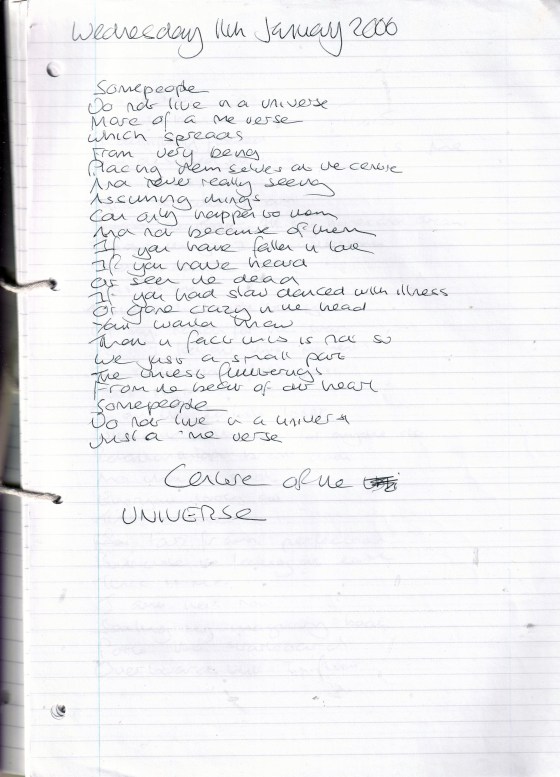 Wednesday 11th January 2006
Somepeople
Do not live in a universe
More of a me verse
which spreads
From very being
Placing themselves at the centre
And never really seeing
Assuming things
Can only happen to them
And not because of them
If you have fallen in love
If you have heard
Or seen the dead
If you had slow danced with illness
Or gone crazy in the head
You would know
That in fact this is not so
We just a small part
The
From the beat of our heart
Somepeople
Do not live in a universe
Just a me verse
Centre of the
UNIVERSE